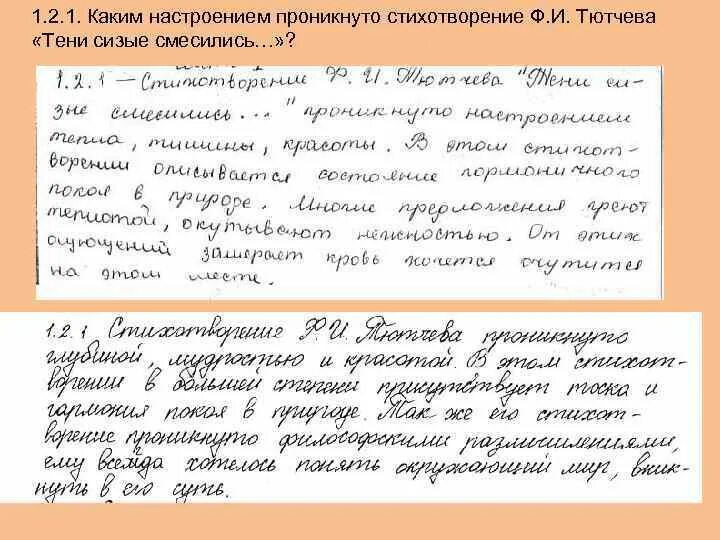 1.2.1. Каким настроением проникнуто стихотворение Ф.И. Тютчева
«Тени сизые смесились…»?
1.2.1 – Стихотворение Ф. И. Тютчева "Тени си-
зые смесились..." проникнуто настроением
тепла, тишины, красоты. В этом стихот-
ворении описывается состояние гормоничного
покоя в природе. Многие предложения греют
теплотой, окутывают нежностью. От этих
ощющений замерает кровь хочется очутится
на этом месте.
1.2.1 Стихотворение Ф.И. Тютчева проникнуто
глубиной, мудростью и красотой. В этом стихот-
ворении в большей степени присутствует тоска и
гармония покоя в природе. Так же его стихот-
ворение проникнуто философскими размишлениями,
ему всегда хотелось понять окружающий мир, вник-
нуть в его суть.